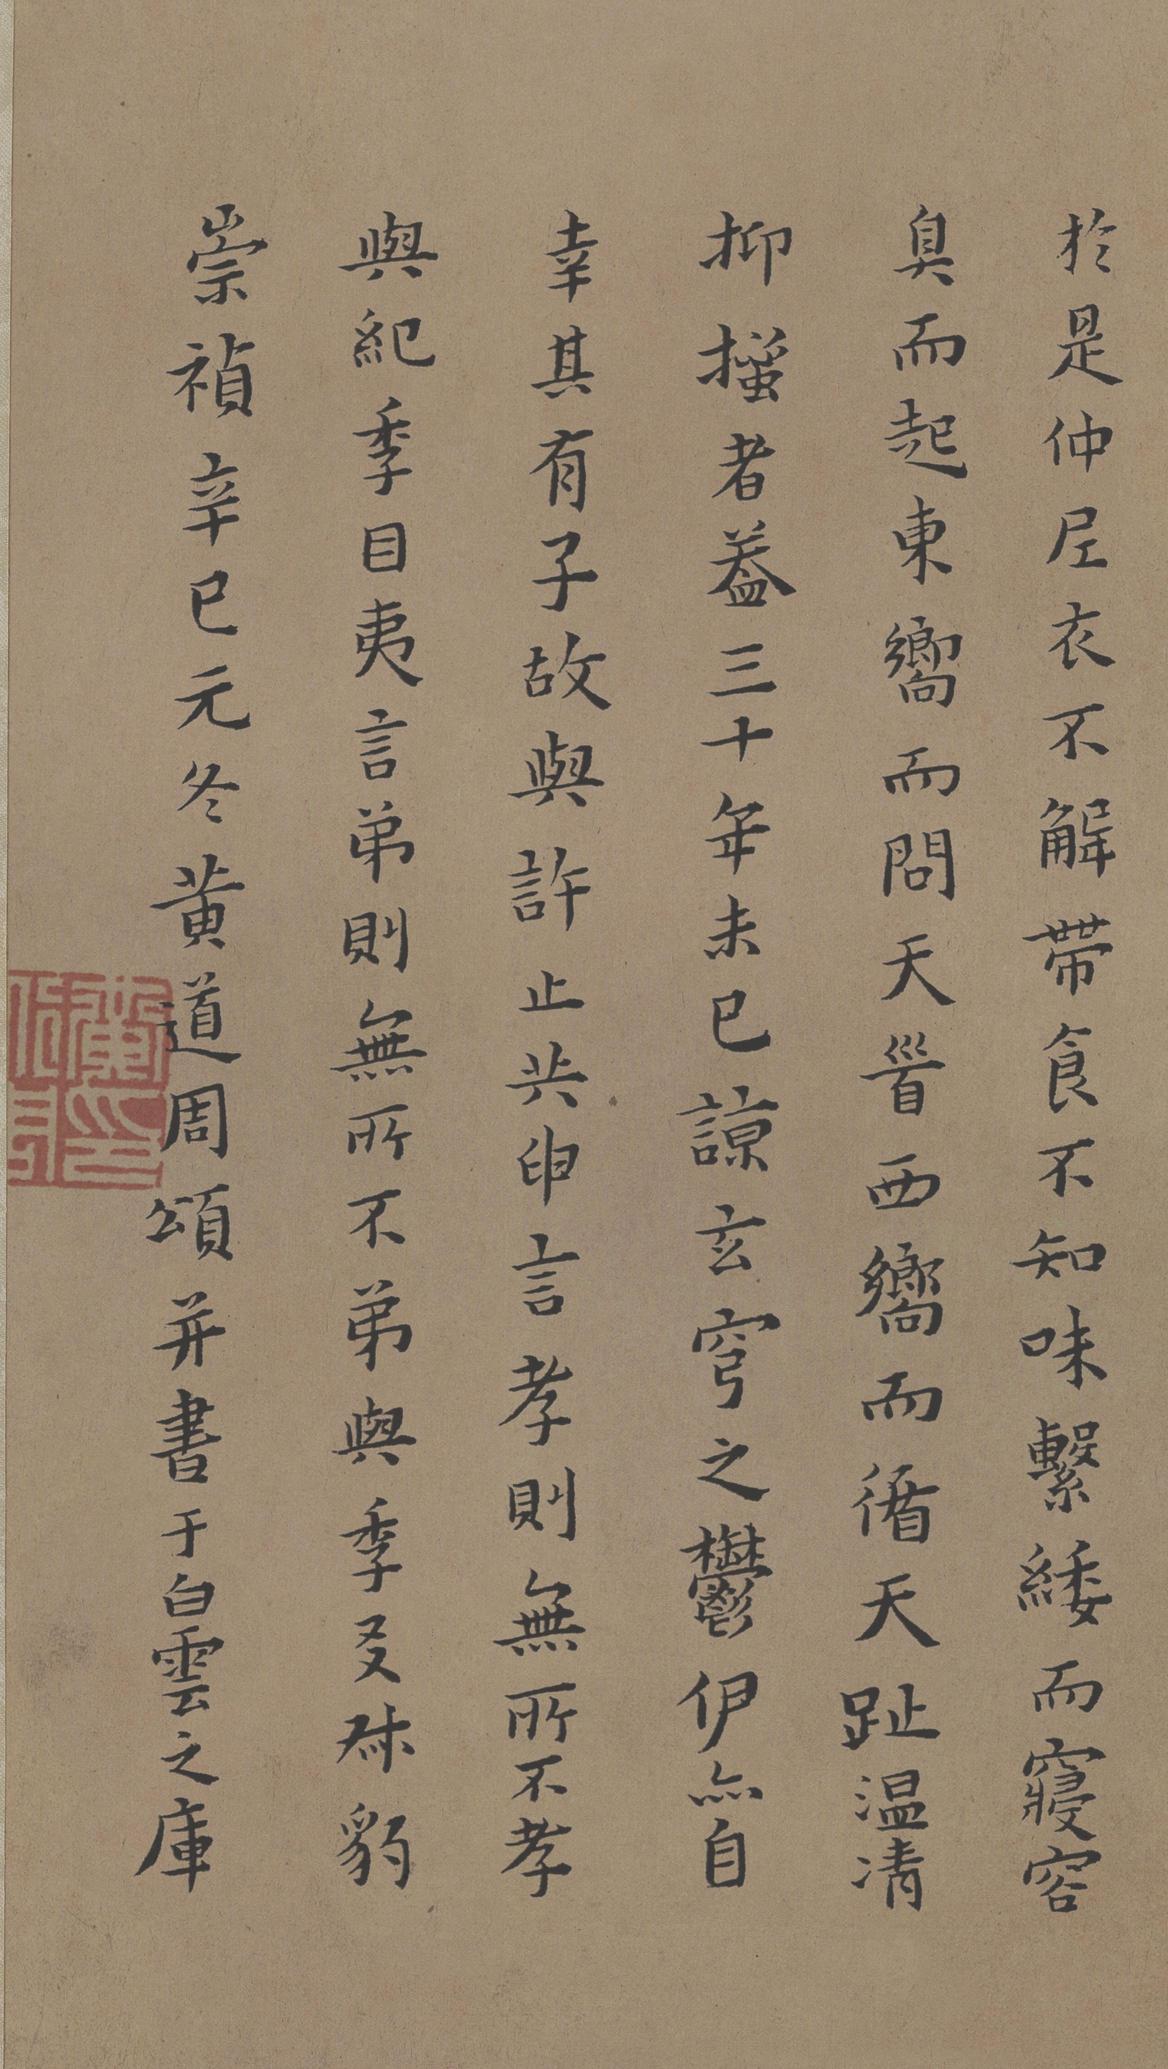 於是仲尼衣不解帶食不知味繫緌而寢容
臭而起東嚮而問天晉西嚮而循天趾温凊
抑搔者葢三十年未已諒玄穹之鬱伊亦自
幸其有子故與許止共申言孝則無所不孝
與紀季目夷言弟則無所不弟與季叕叔豹
崇禎辛巳元冬黄道周頌并書于白雲之庫